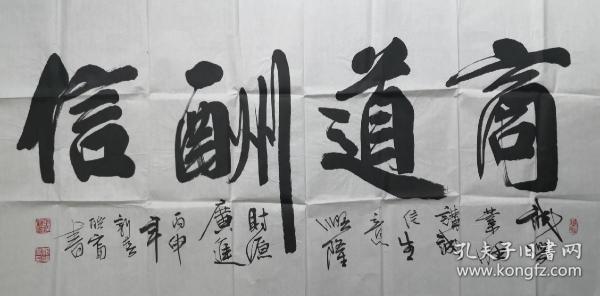 商道酬信
講誠
信生
意
興隆
財源
廣進
丙申
年
新春
書
孔夫子旧书网
www.kongfz.com